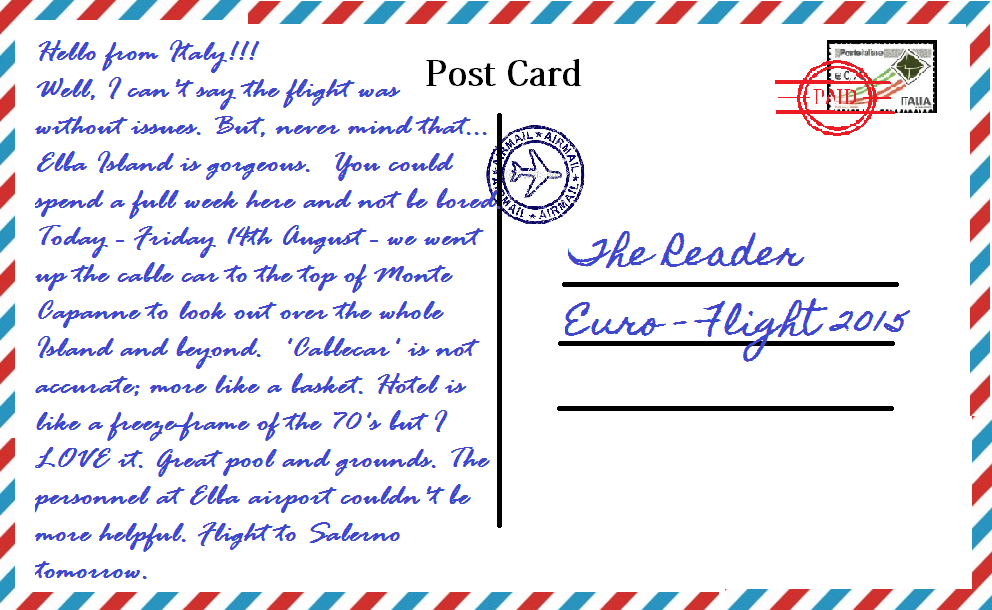 Hello from Italy!!!
Well, I can't say the flight was
without issues. But, never mind that...
Elba Island is gorgeous. You could
spend a full week here and not be bored
Today - Friday 14th August - we went
up the cable car to the top of Monte
Capanne to look out over the whole
Island and beyond. 'Cablecar' is not
accurate; more like a basket. Hotel is
like a freeze-frame of the 70's but I
LOVE it. Great pool and grounds. The
personnel at Elba airport couldn't be
more helpful. Flight to Salerno
tomorrow.
Post Card
AIRMAIL ★ AIRMAIL ★ AIRMAIL ★
Posteitaliane
€0,
ITALIA
PAID
The Reader
Euro-Flight 2015